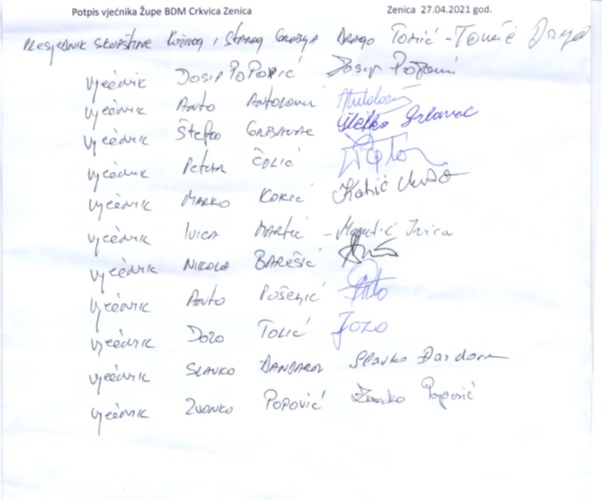 Potpis vjećnika Župe BDM Crkvica Zenica Zenica 27.04.2021 god.
PRESJEDNIK SKUPŠTINE KUŽNOG I STAROG GROBLJA DRAGO TOMIĆ - Tomić Drago
VJEĆNIK JOSIP POPOVIĆ Josip
VJEĆNIK ANTO ANTOLOVIĆ
VJEĆNIK ŠTEFKO GRBAVAC Štefko Grbavac
VJEĆNIK PETAR ČOLIĆ
VJEĆNIK MARKO
VJEĆNIK IVICA MARTIĆ - Ivica
VJEĆNIK NIKOLA BAREŠIĆ
VJEĆNIK ANTO Anto
VJEĆNIK JOZO TOLIĆ Jozo
VJEĆNIK SLAVKO Slavko
VJEĆNIK ZVONKO POPOVIĆ Zvonko Popović